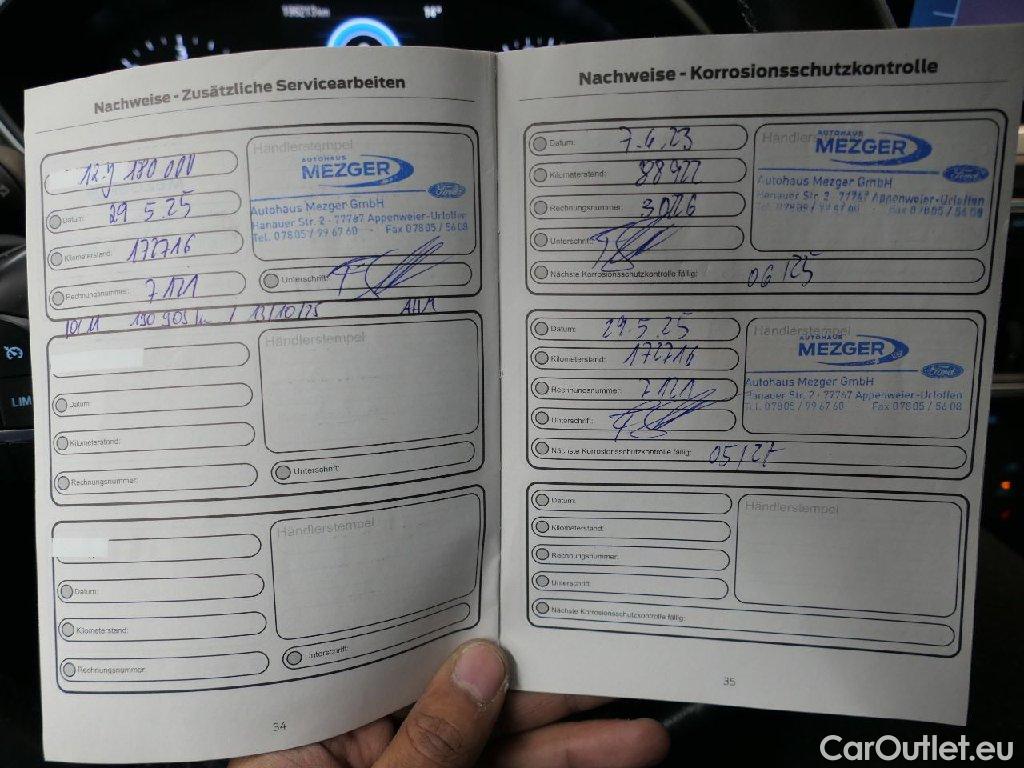 Nachweise - Zusätzliche Servicearbeiten
Händlerstempel
AUTOHAUS
MEZGER
Ford
Autohaus Mezger GmbH
Hanauer Str. 2 - 77767 Appenweier-Urloffen
Tel. 07805 / 99 67 60 - Fax 07805 / 56 08
Datum: 29.5.25
Kilometerstand: 172716
Rechnungsnummer: 7121
Unterschrift:
190 905 km / 13/10/25
Händlerstempel
Datum:
Kilometerstand:
Rechnungsnummer:
Unterschrift:
Händlerstempel
Datum:
Kilometerstand:
Rechnungsnummer:
Unterschrift:
34
Nachweise - Korrosionsschutzkontrolle
Datum: 7.6.23
Kilometerstand: 88922
Rechnungsnummer: 3026
Unterschrift:
Händlerstempel
AUTOHAUS
MEZGER
Ford
Autohaus Mezger GmbH
Hanauer Str. 2 - 77767 Appenweier-Urloffen
Tel. 07805 / 99 67 60 - Fax 07805 / 56 08
Nächste Korrosionsschutzkontrolle fällig: 06/25
Datum: 29.5.25
Kilometerstand: 172716
Rechnungsnummer: 7121
Unterschrift:
Händlerstempel
AUTOHAUS
MEZGER
Ford
Autohaus Mezger GmbH
Hanauer Str. 2 - 77767 Appenweier-Urloffen
Tel. 07805 / 99 67 60 Fax 07805 / 56 08
Nächste Korrosionsschutzkontrolle fällig: 05/27
Datum:
Kilometerstand:
Rechnungsnummer:
Unterschrift:
Händlerstempel
Nächste Korrosionsschutzkontrolle fällig:
35
LIM
CarOutlet.eu